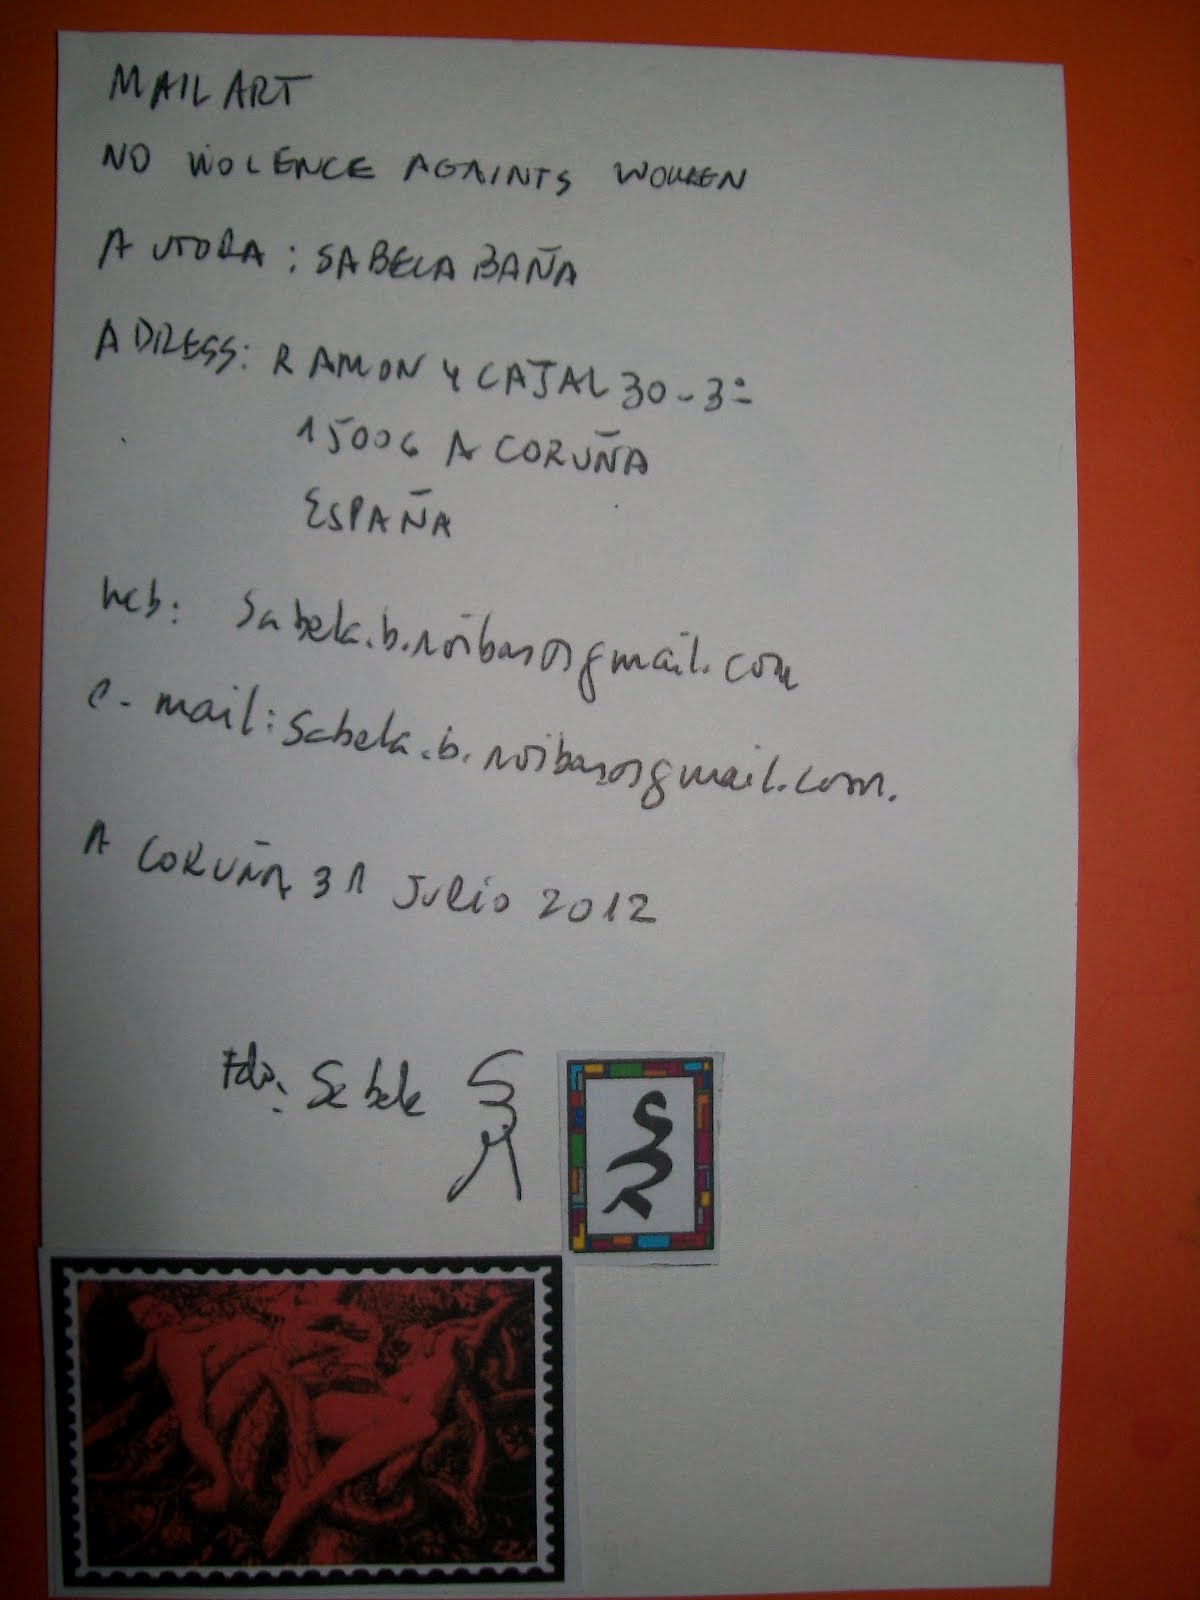 MAIL ART
NO VIOLENCE AGAINTS WOMEN
AUTORA: SABELA BAÑA
ADRESS: RAMON Y CAJAL 30-3º
15006 A CORUÑA
ESPAÑA
web: sabela.b.noibas@gmail.com
e-mail: sabela.b.noibas@gmail.com.
A CORUÑA 31 JULIO 2012
Fdo: Sabela